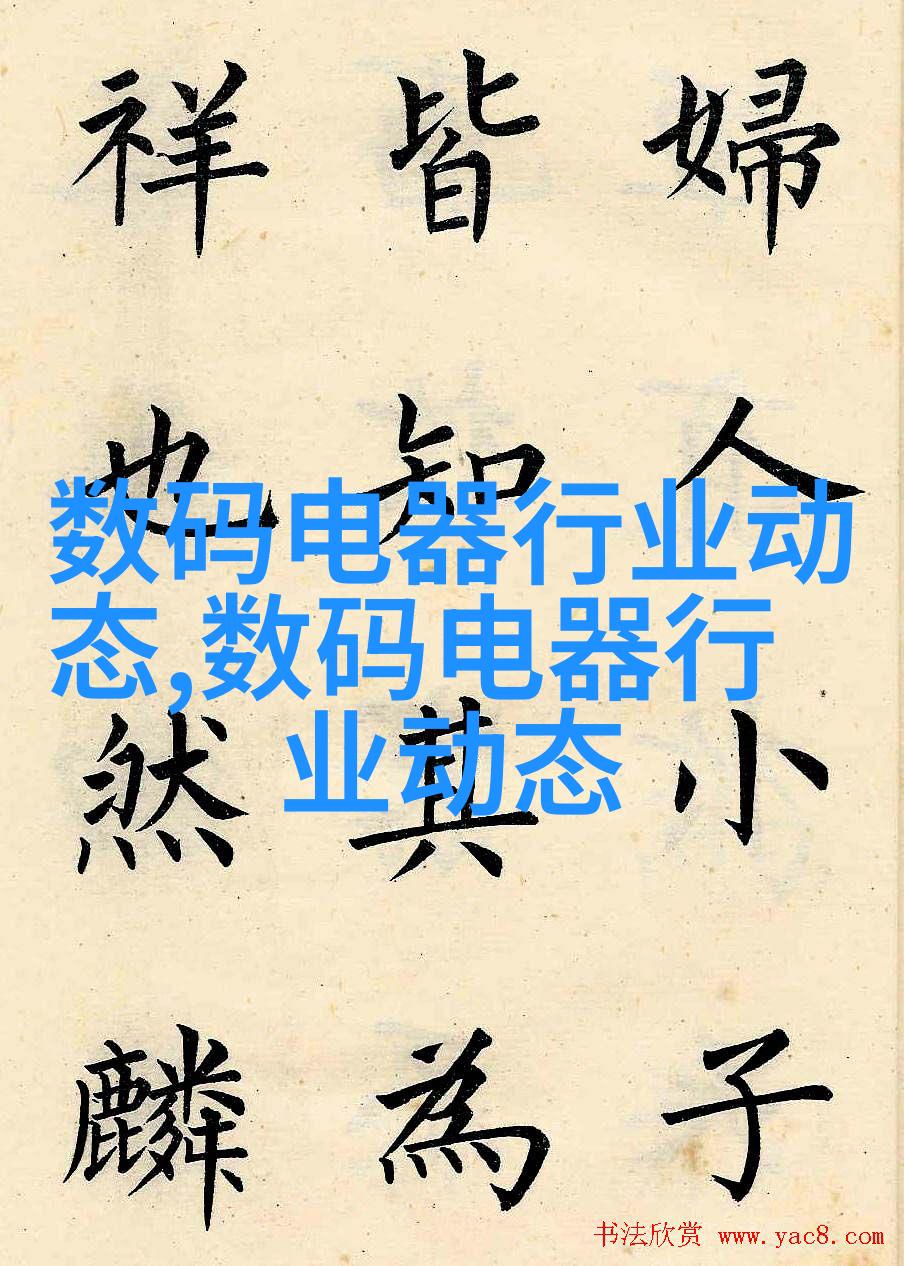 婦人小子
皆知其為
祥也然麟
数码电器行业动
态,数码电器行
业动态
书法欣赏 www.yac8.com